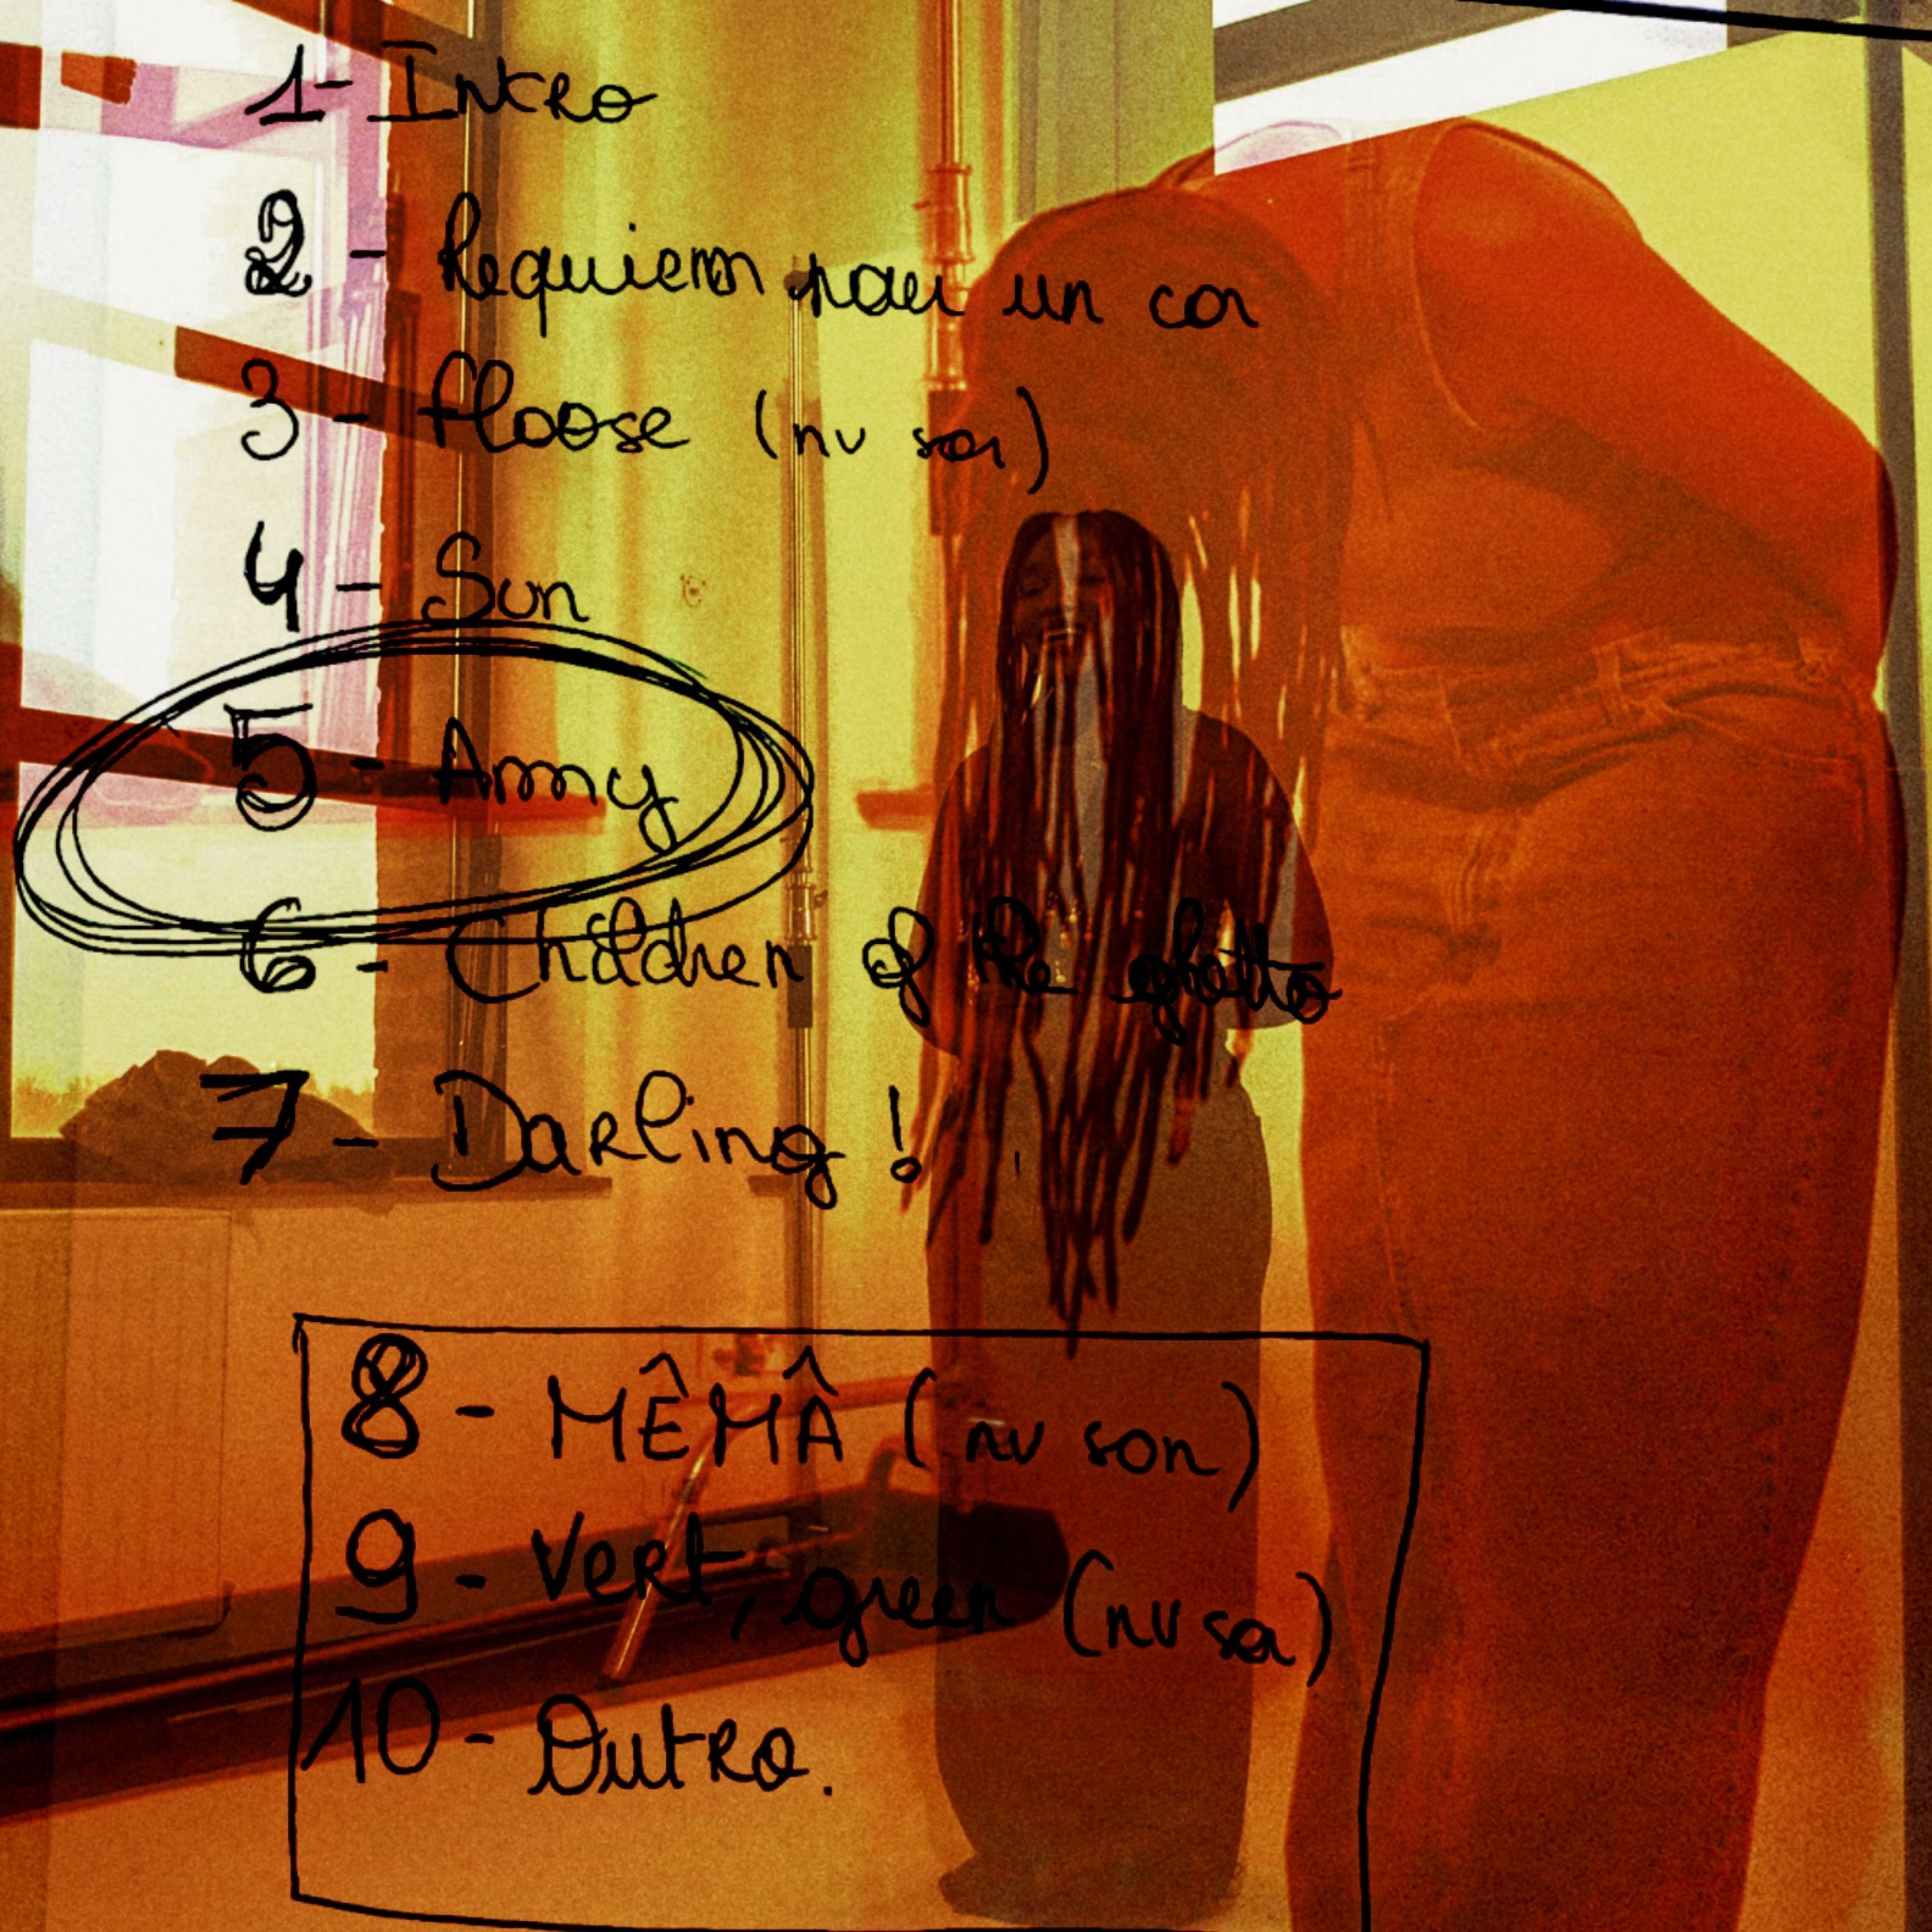 1- Intro
2 - Requiem pour un con
3 - Floose (nv son)
4 - Sun
5 - Army
6 - Children of the ghetto
7 - Darling !
8 - MÊMÂ (nv son)
9 - Vert, green (nv son)
10 - Outro.